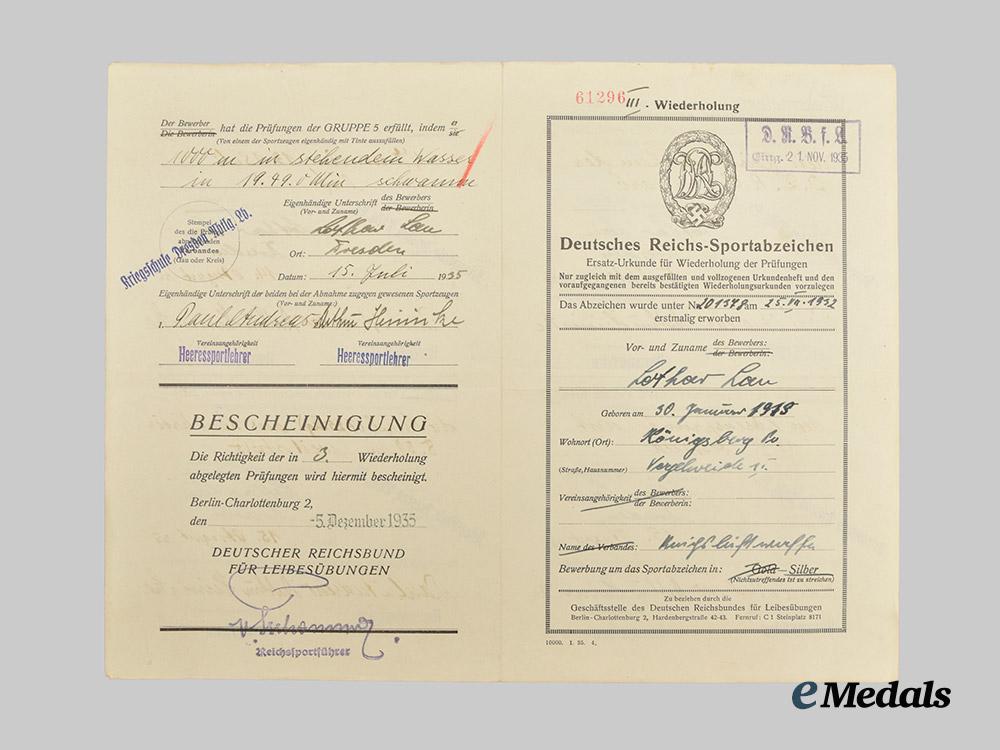 Der Bewerber
Die Bewerberin hat die Prüfungen der GRUPPE 5 erfüllt, indem er
sie
(Von einem der Sportzeugen eigenhändig mit Tinte auszufüllen)
1000 m in stehendem Wasser
in 19.49.0 Min schwamm
Eigenhändige Unterschrift des Bewerbers
(Vor- und Zuname) der Bewerberin
Lothar Lau
Stempel
des die
Verbandes
(Gau oder Kreis)
Kriegschule Dresden Abtlg. 2b.
Ort: Dresden
Datum: 15. Juli 1935
Eigenhändige Unterschrift der beiden bei der Abnahme zugegen gewesenen Sportzeugen
(Vor- und Zuname)
Paul Andreas Arthur
Vereinsangehörigkeit Vereinsangehörigkeit
Heeressportlehrer Heeressportlehrer
BESCHEINIGUNG
Die Richtigkeit der in 3. Wiederholung
abgelegten Prüfungen wird hiermit bescheinigt.
Berlin-Charlottenburg 2,
den -5. Dezember 1935
DEUTSCHER REICHSBUND
FÜR LEIBESÜBUNGEN
Reichssportführer
61296 III. Wiederholung
D. R. B. f. L.
Eing. 21. NOV. 1935
Deutsches Reichs-Sportabzeichen
Ersatz-Urkunde für Wiederholung der Prüfungen
Nur zugleich mit dem ausgefüllten und vollzogenen Urkundenheft und den
voraufgegangenen bereits bestätigten Wiederholungsurkunden vorzulegen
Das Abzeichen wurde unter Nr. 201378 am 25. III. 1932
erstmalig erworben
Vor- und Zuname des Bewerbers:
der Bewerberin:
Lothar Lau
Geboren am 30. Januar 1913
Wohnort (Ort): Königsberg Pr.
(Straße, Hausnummer)
Vereinsangehörigkeit des Bewerbers:
der Bewerberin:
Name des Verbandes: Reichsluftwaffe
Bewerbung um das Sportabzeichen in: Gold Silber
(Nichtzutreffendes ist zu streichen)
Zu beziehen durch die
Geschäftsstelle des Deutschen Reichsbundes für Leibesübungen
Berlin-Charlottenburg 2, Hardenbergstraße 42-43. Fernruf: C 1 Steinplatz 8171
10000. 1. 35. 4.
eMedals